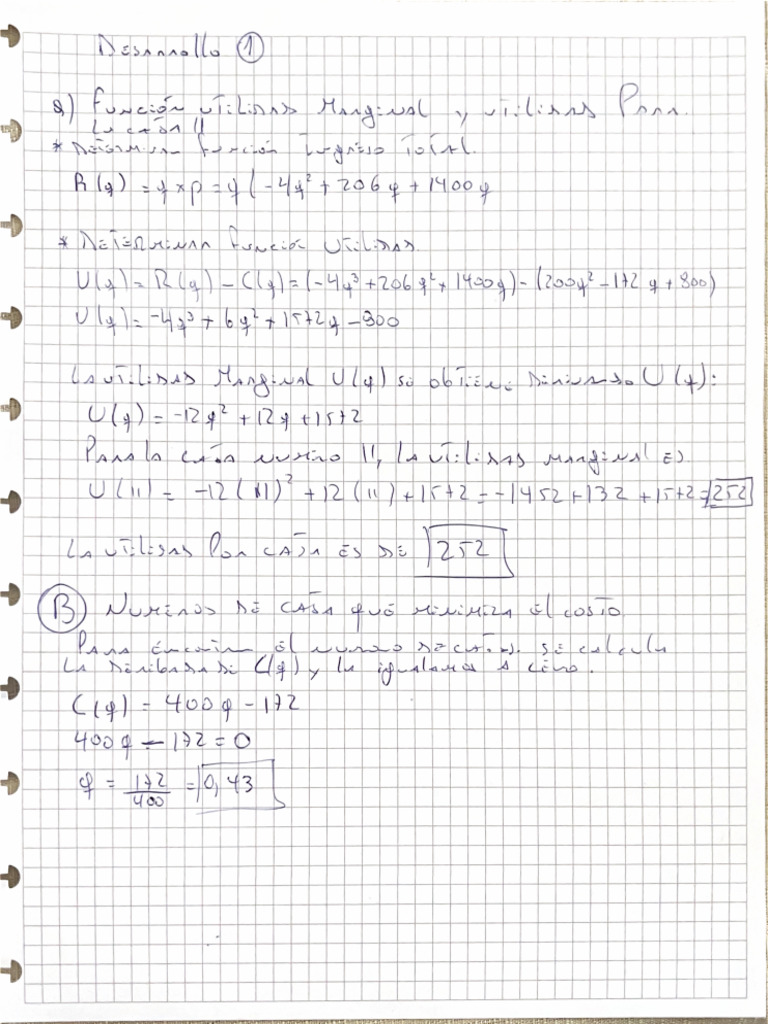 Desarrollo ①
a) Función utilidad Marginal y utilidad Para
La caja 11
* Determinar función Ingreso Total.
R(q) = q x p = q (-4q² + 206q + 1400q
* Determinar función Utilidad.
U(q) = R(q) - C(q) = (-4q³ + 206q² + 1400q) - (200q² - 172q + 800)
U(q) = -4q³ + 6q² + 1572q - 900
La utilidad Marginal U(q) se obtiene derivando U(q):
U(q) = -12q² + 12q + 1572
Para la caja numero 11, la utilidad marginal es
U(11) = -12(11)² + 12(11) + 1572 = -1452 + 132 + 1572 = 252
La utilidad Por caja es de 252
B) Numeros de caja que minimiza el costo.
Para encontrar el numero de cajas. se calcula
la deribada de C(q) y la igualamos a cero.
C(q) = 400q - 172
400q - 172 = 0
q = 172/400 = 0,43